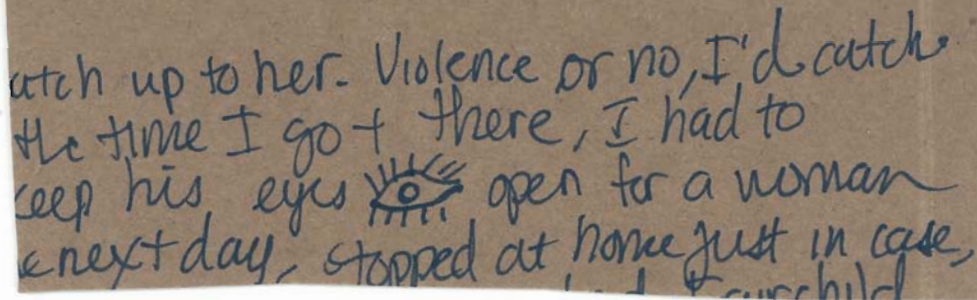 atch up to her. Violence or no, I'd catch
the time I got there, I had to
eep his eyes open for a woman
e next day, stopped at home just in case,